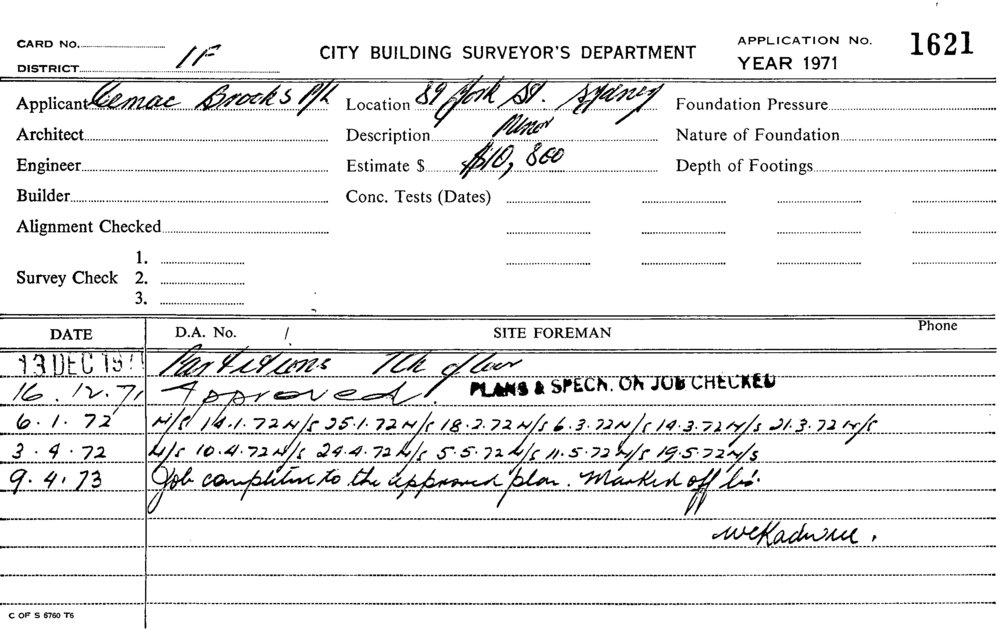 CARD No.
CITY BUILDING SURVEYOR'S DEPARTMENT
APPLICATION No. 1621
DISTRICT 1F
YEAR 1971
Applicant Cemac Brooks P/L
Location 89 York St. Sydney
Foundation Pressure
Architect
Description Minor
Nature of Foundation
Engineer
Estimate $ $10,800
Depth of Footings
Builder
Conc. Tests (Dates)
Alignment Checked
Survey Check
1.
2.
3.
DATE
D.A. No. /
SITE FOREMAN
Phone
13 DEC 197 Partitions 7th floor
16.12.71 Approved. PLANS & SPECN. ON JOB CHECKED
6.1.72 N/S 14.1.72 N/S 25.1.72 N/S 18.2.72 N/S 6.3.72 N/S 14.3.72 N/S 21.3.72 N/S
3.4.72 N/S 10.4.72 N/S 24.4.72 N/S 5.5.72 N/S 11.5.72 N/S 19.5.72 N/S
9.4.73 Job completion to the approved plan. Marked off
C OF S 6760 T6